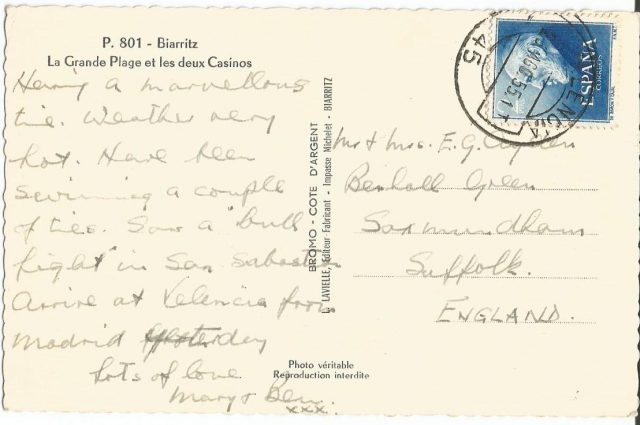 P. 801 - Biarritz
La Grande Plage et les deux Casinos
Having a marvellous
time. Weather very
hot. Have been
swimming a couple
of times. Saw a bull
fight in San Sabastian
Arrive at Valencia from
Madrid yesterday
Lots of love
Mary & Ben.
xxx.
BROMO - COTE D'ARGENT
LAVIELLE, Editeur-Fabricant - Impasse Michelet - BIARRITZ
Photo véritable
Reproduction interdite
ESPAÑA
CORREOS
45
Mr & Mrs. E.G.
Benhall Green
Saxmundham
Suffolk.
ENGLAND.